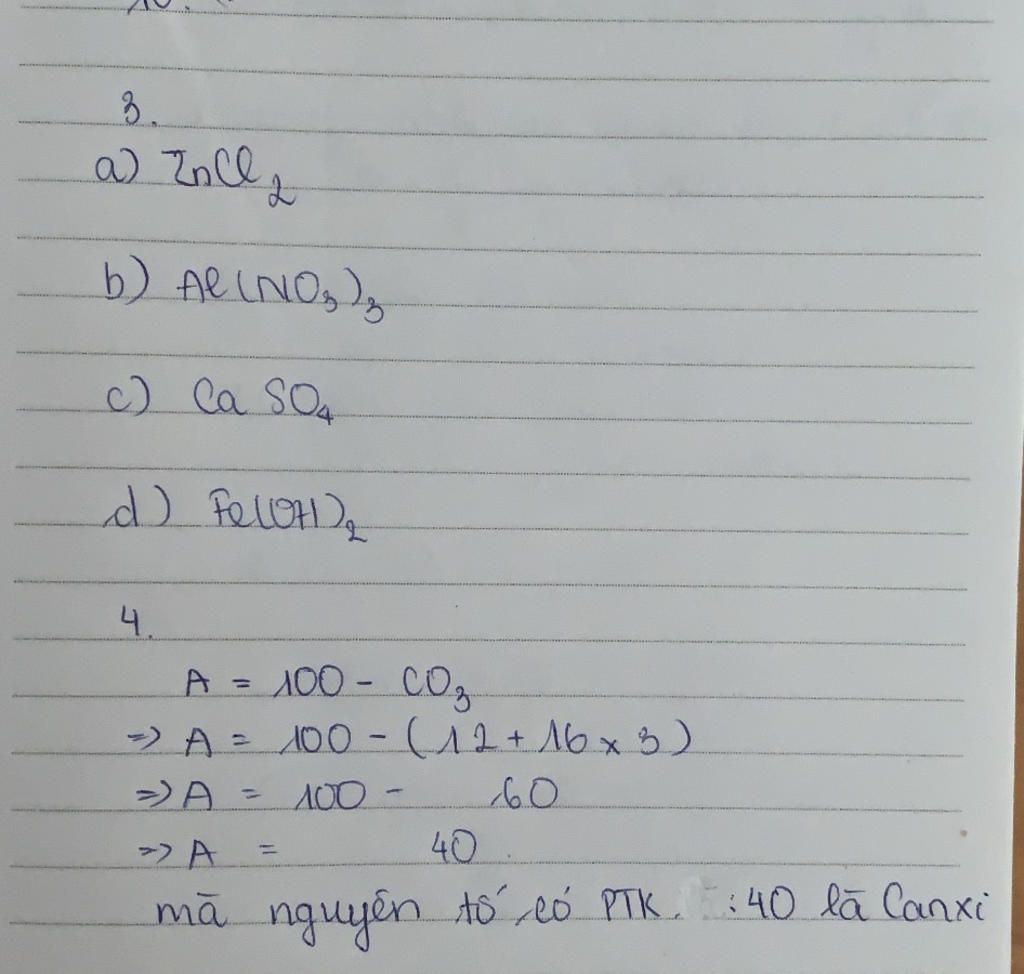 3.
a) ZnCl₂
b) Al(NO₃)₃
c) CaSO₄
d) Fe(OH)₂
4.
A = 100 - CO₃
=> A = 100 - (12 + 16 x 3)
=> A = 100 - 60
=> A = 40
mà nguyên tố có PTK : 40 là Canxi